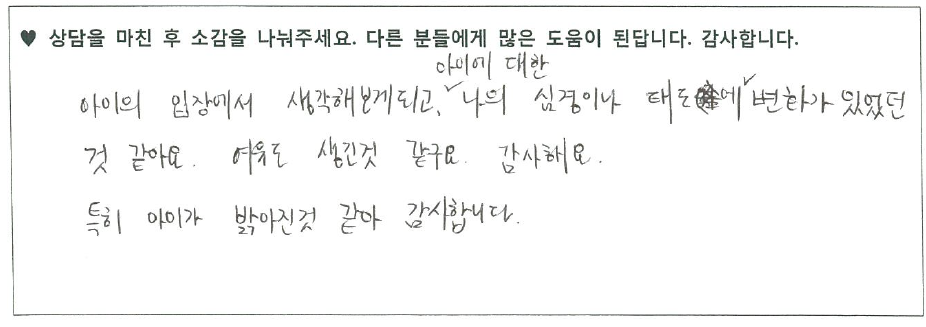 ♥ 상담을 마친 후 소감을 나눠주세요. 다른 분들에게 많은 도움이 된답니다. 감사합니다.
아이에 대한
아이의 입장에서 생각해보게되고, ✓나의 심경이나 태도에 ✓변화가 있었던
것 같아요. 여유도 생긴것 같구요. 감사해요.
특히 아이가 밝아진것 같아 감사합니다.